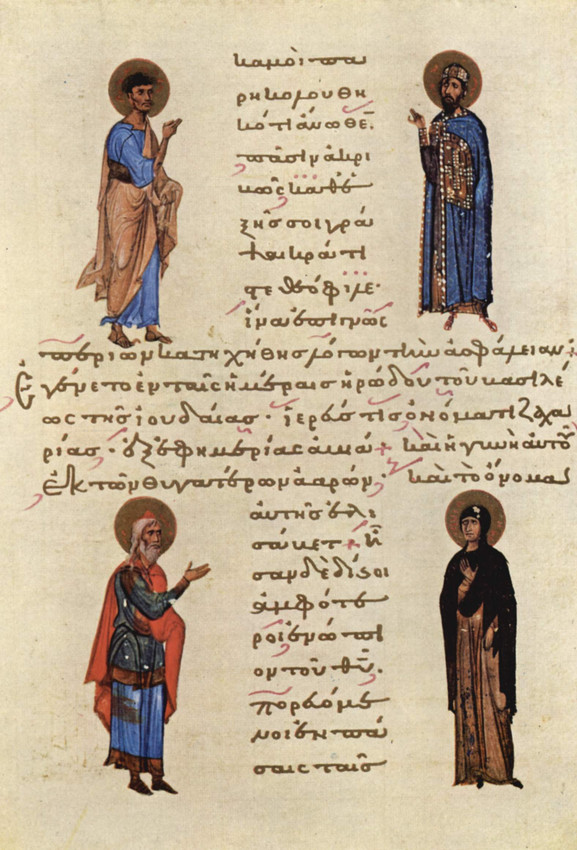 κἀμοὶ πα
ρηκολουθη
κότι ἄνωθε̅.
πᾶσιν ἀκρι
βῶς καθε
ξῆς σοι γρά
ψαι κράτι
στε θεόφιλε·
ἵνα ἐπιγνῶς
περὶ ὧν κατηχήθης λόγων τὴν ἀσφάλειαν:
Ἐγένετο ἐν ταῖς ἡμέραις ἡρώδου τοῦ βασιλέ
ως τῆς ἰουδαίας· ἱερεύς τις ὀνόματι ζαχα
ρίας· ἐξ ἐφημερίας ἀβιά + καὶ ἡ γυνὴ αὐτοῦ
ἐκ τῶν θυγατέρων ἀαρών· καὶ τὸ ὄνομα
αὐτῆς ἐλι
σάβετ + ἦ
σαν δὲ δίκαιοι
ἀμφότε
ροι ἐνώπι
ον τοῦ θ̅υ̅.
πορευόμε
νοι ἐν πά
σαις ταῖς